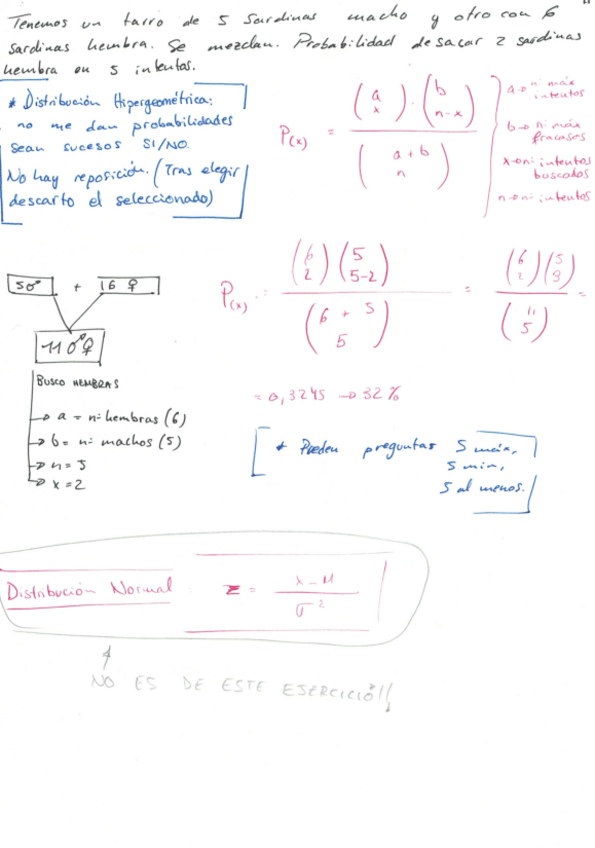 Tenemos un tarro de 5 sardinas macho y otro con 6
sardinas hembra. Se mezclan. Probabilidad de sacar 2 sardinas
hembra en 5 intentos.
* Distribución Hipergeométrica:
no me dan probabilidades
sean sucesos SI/NO.
No hay reposición. (Tras elegir
descarto el seleccionado)
P(x) = (a x) · (b n-x) / (a+b n)
a → nº máx
intentos
b → nº máx
fracasos
x → nº intentos
buscados
n → nº intentos
5 ♂ + 6 ♀
11 ♂♀
P(x) = (6 2)(5 5-2) / (6 + 5 5) = (6 2)(5 3) / (11 5) =
= 0,3245 → 32%
BUSCO HEMBRAS
→ a = nº hembras (6)
→ b = nº machos (5)
→ n = 5
→ x = 2
* Pueden preguntas 5 máx,
5 min,
5 al menos.
Distribución Normal z = x - M / σ²
NO ES DE ESTE EJERCICIO!!